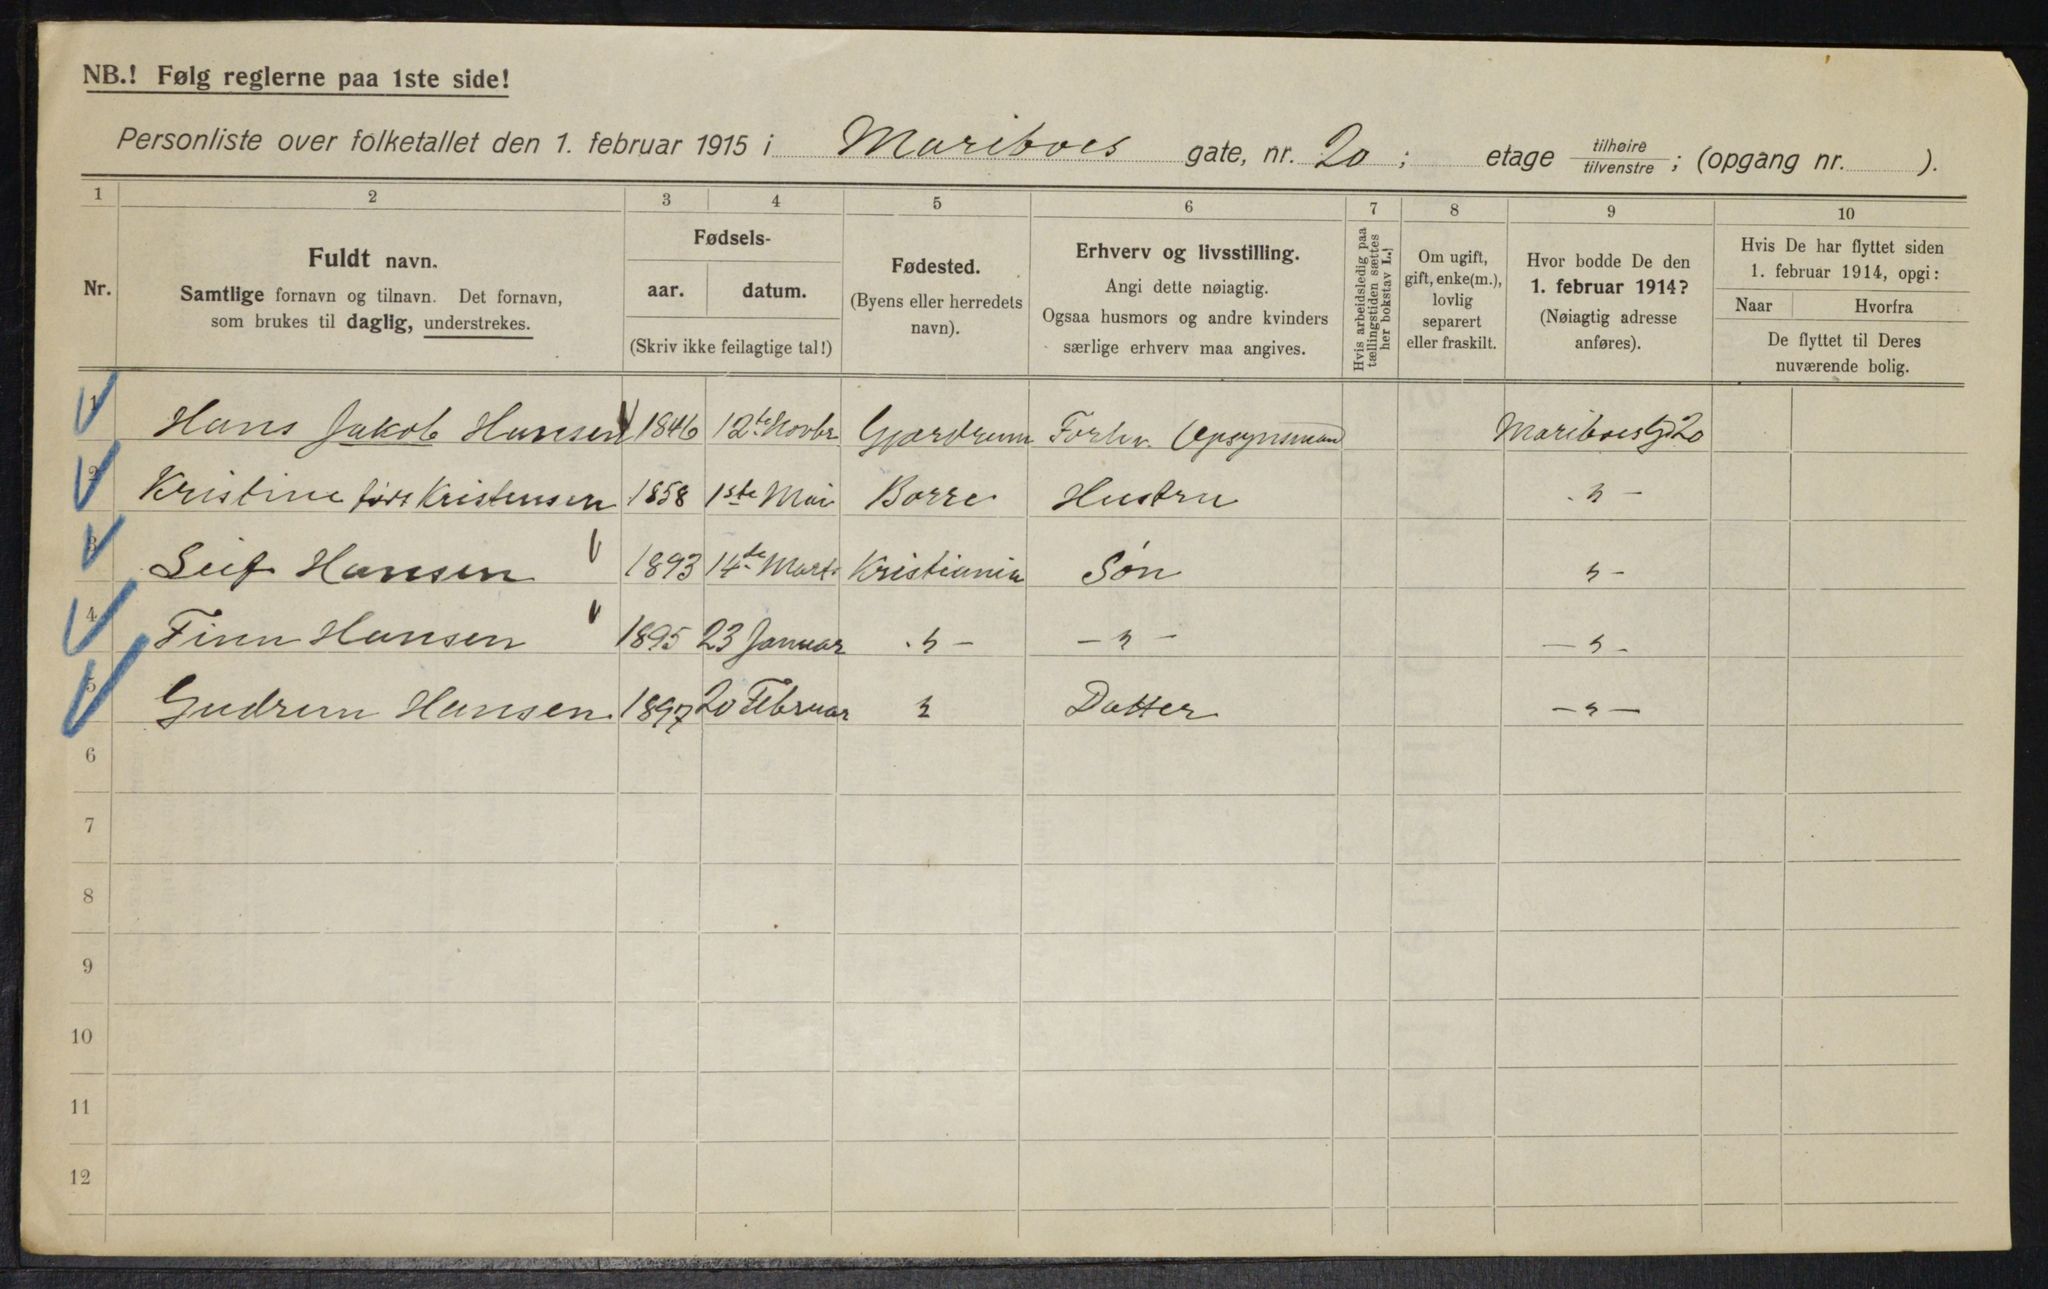 NB.! Følg reglerne paa 1ste side!
Personliste over folketallet den 1. februar 1915 i Mariboes gate, nr. 20 ; etage tilhøire tilvenstre ; (opgang nr. ).
1 2 3 4 5 6 7 8 9 10
Nr.
Fuldt navn.
Samtlige fornavn og tilnavn. Det fornavn,
som brukes til daglig, understrekes.
Fødsels-
aar. datum.
(Skriv ikke feilagtige tal!)
Fødested.
(Byens eller herredets
navn).
Erhverv og livsstilling.
Angi dette nøiagtig.
Ogsaa husmors og andre kvinders
særlige erhverv maa angives.
Hvis arbeidsledig paa
tællingstiden sættes
her bokstav L.!
Om ugift,
gift, enke(m.),
lovlig
separert
eller fraskilt.
Hvor bodde De den
1. februar 1914?
(Nøiagtig adresse
anføres).
Hvis De har flyttet siden
1. februar 1914, opgi:
Naar Hvorfra
De flyttet til Deres
nuværende bolig.
1 Hans Jakob Hansen 1846 12te Novbr Gjerdrum Forhv. Opsynsmand Mariboes G 20
2 Kristine født Kristensen 1858 1ste Mai Borre Hustru " -
3 Leif Hansen 1893 14de Marts Kristiania Søn " -
4 Finn Hansen 1895 23 Januar " - - " - - " -
5 Gudrun Hansen 1897 20 Februar " Datter - " -
6
7
8
9
10
11
12